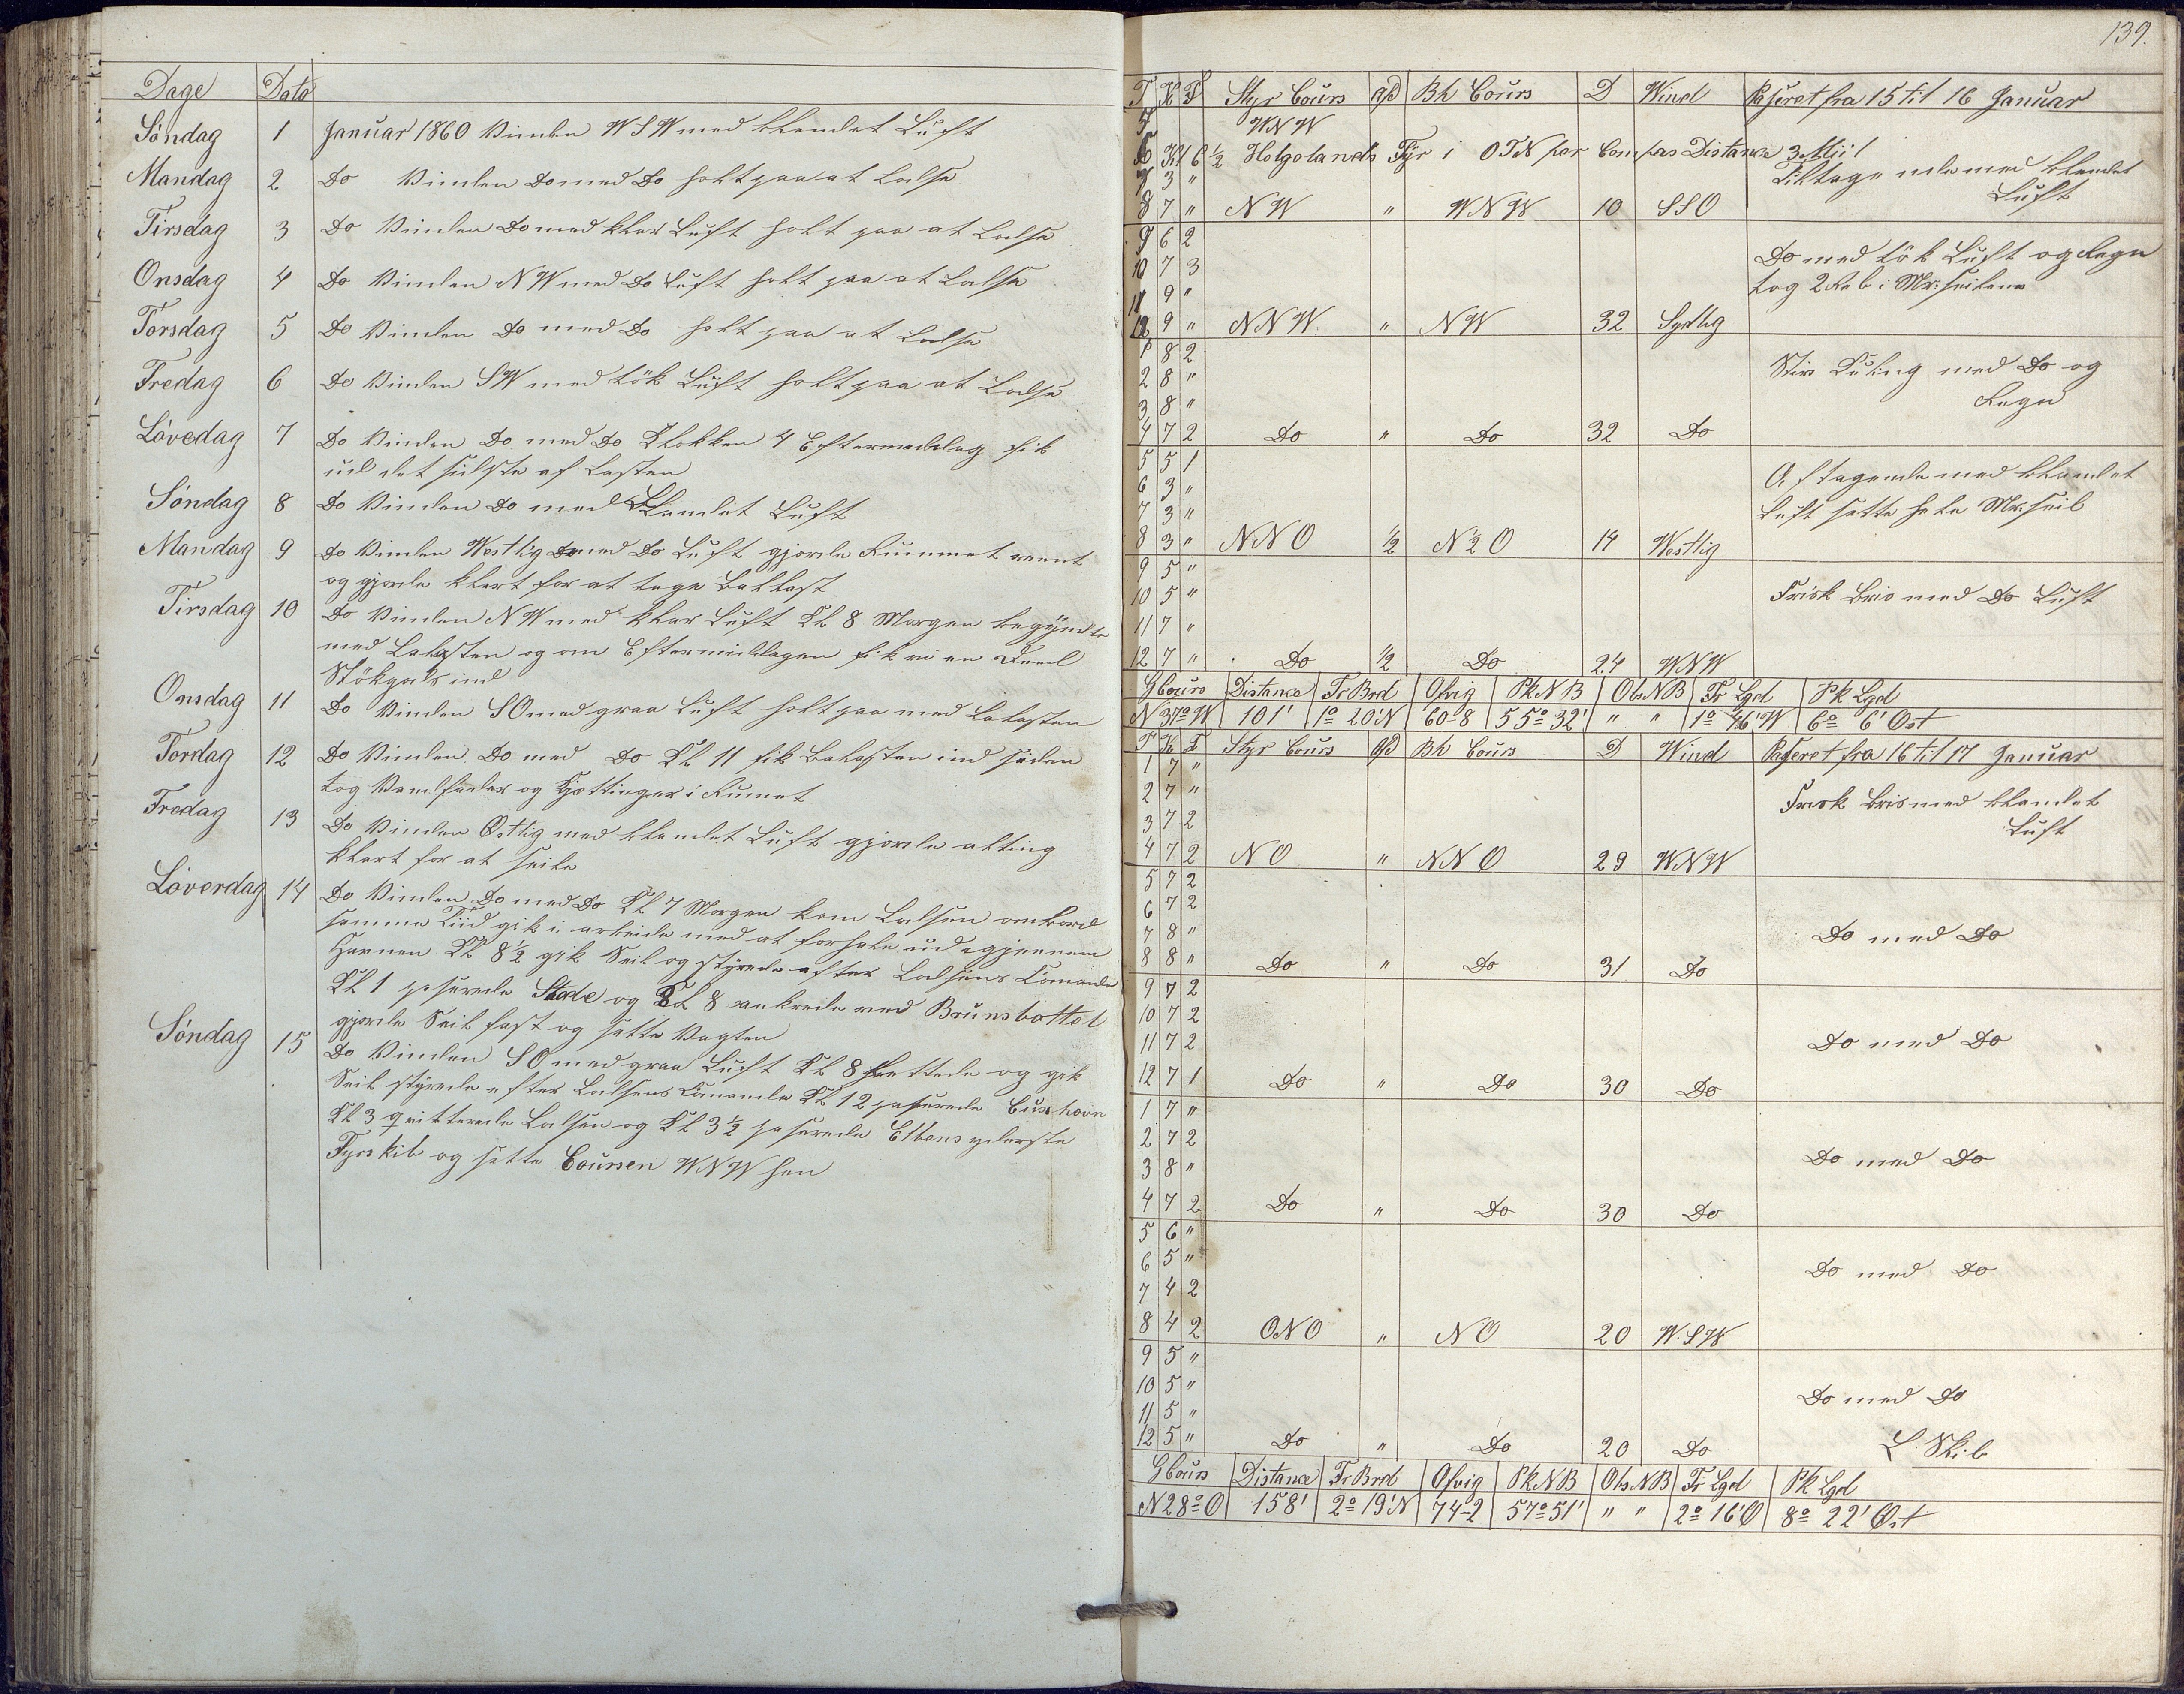 Dage Dato
Söndag 1 Januar 1860 Vinden WSW med blandet Luft
Mandag 2 Do Vinden Do med Do holt paa at Losse
Tirsdag 3 Do Vinden Do med klar Luft holt paa at Losse
Onsdag 4 Do Vinden NW med Do Luft holt paa at Losse
Torsdag 5 Do Vinden Do med Do holt paa at Losse
Fredag 6 Do Vinden SW med tök Luft holt paa at Losse
Lövedag 7 Do Vinden Do med Do Klokken 4 Eftermeddag fik
ud det sidste af Lasten
Söndag 8 Do Vinden Do med Blandet Luft
Mandag 9 Do Vinden Westlig med Do Luft gjorde Rummet reent
og gjorde klart for at tage Ballast
Tirsdag 10 Do Vinden NW med klar Luft Kl 8 Morgen begyndte
med Balasten og om Eftermiddagen fik vi en Deel
Stökgods ind
Onsdag 11 Do Vinden SO med graa Luft holt paa med Balasten
Tordag 12 Do Vinden Do med Do Kl 11 fik Balasten ind siden
tog Vandfader og Kjættinger i Rumet
Fredag 13 Do Vinden Ostlig med blandet Luft gjorde alting
klart for at seile
Löverdag 14 Do Vinden Do med Do Kl 7 Morgen kom Lodsen ombord
samme Tiid gik i arbeide med at forhale ud egjennem
Havnen Kl 8½ gik Seil og styrede efter Lodsens Comande
Kl 1 passerede Stade og Kl 8 ankrede ved Brunsbottel
gjorde Seil fast og satte Vagten
Söndag 15 Do Vinden SO med graa Luft Kl 8 lettede og gik
Seil styrede efter Lodsens Comande Kl 12 passerede Cuxhavn
Kl 3 qvitterede Lodsen og Kl 3½ passerede Elbens yderste
Fyrskib og satte Coursen WNW hen
139.
T K F Styr Cours afd Bh Cours D Wind Passeret fra 15 til 16 Januar
WNW
Kl 6 ½ Helgolands Fyr i OTN per Compas Distance 3 Miil
7 3 " Tiltagende med blandet
8 7 " NW " WNW 10 SSO Luft
9 6 2
10 7 3 Do med tök Luft og Regn
11 9 " tog 2 Reb i Mrsseilene
12 9 " NNW " NW 32 Sydlig
1 8 2
2 8 " Stiv Kuling med Do og
3 8 " Regn
4 7 2 Do " Do 32 Do
5 5 1
6 3 " Aftagende med blandet
7 3 " Luft satte hele Mrsseil
8 3 " NNO ½ N½O 14 Westlig
9 5 "
10 5 " Frisk Bris med Do Luft
11 7 "
12 7 " Do ½ Do 24 WNW
GCours Distance Fr Brd Afvig PkNB ObsNB Fr Lgd Pk Lgd
N 37° W 101' 1° 20' N 60-8 55° 32' " " 1° 46' W 6° 6' Ost
T K F Styr Cours afd Bh Cours D Wind Passeret fra 16 til 17 Januar
1 7 "
2 7 " Frisk Bris med blandet
3 7 2 Luft
4 7 2 NO " NNO 29 WNW
5 7 2
6 7 2
7 8 " Do med Do
8 8 " Do " Do 31 Do
9 7 2
10 7 2
11 7 2 Do med Do
12 7 1 Do " Do 30 Do
1 7 "
2 7 2
3 8 " Do med Do
4 7 2 Do " Do 30 Do
5 6 "
6 5 " Do med Do
7 4 2
8 4 2 ONO " NO 20 WSW
9 5 "
10 5 " Do med Do
11 5 "
12 5 " Do " Do 20 Do Skib
GCours Distance Fr Brd Afvig PkNB ObsNB Fr Lgd Pk Lgd
N 28° O 158' 2° 19' N 74-2 57° 51' " " 2° 16' O 8° 22' Ost